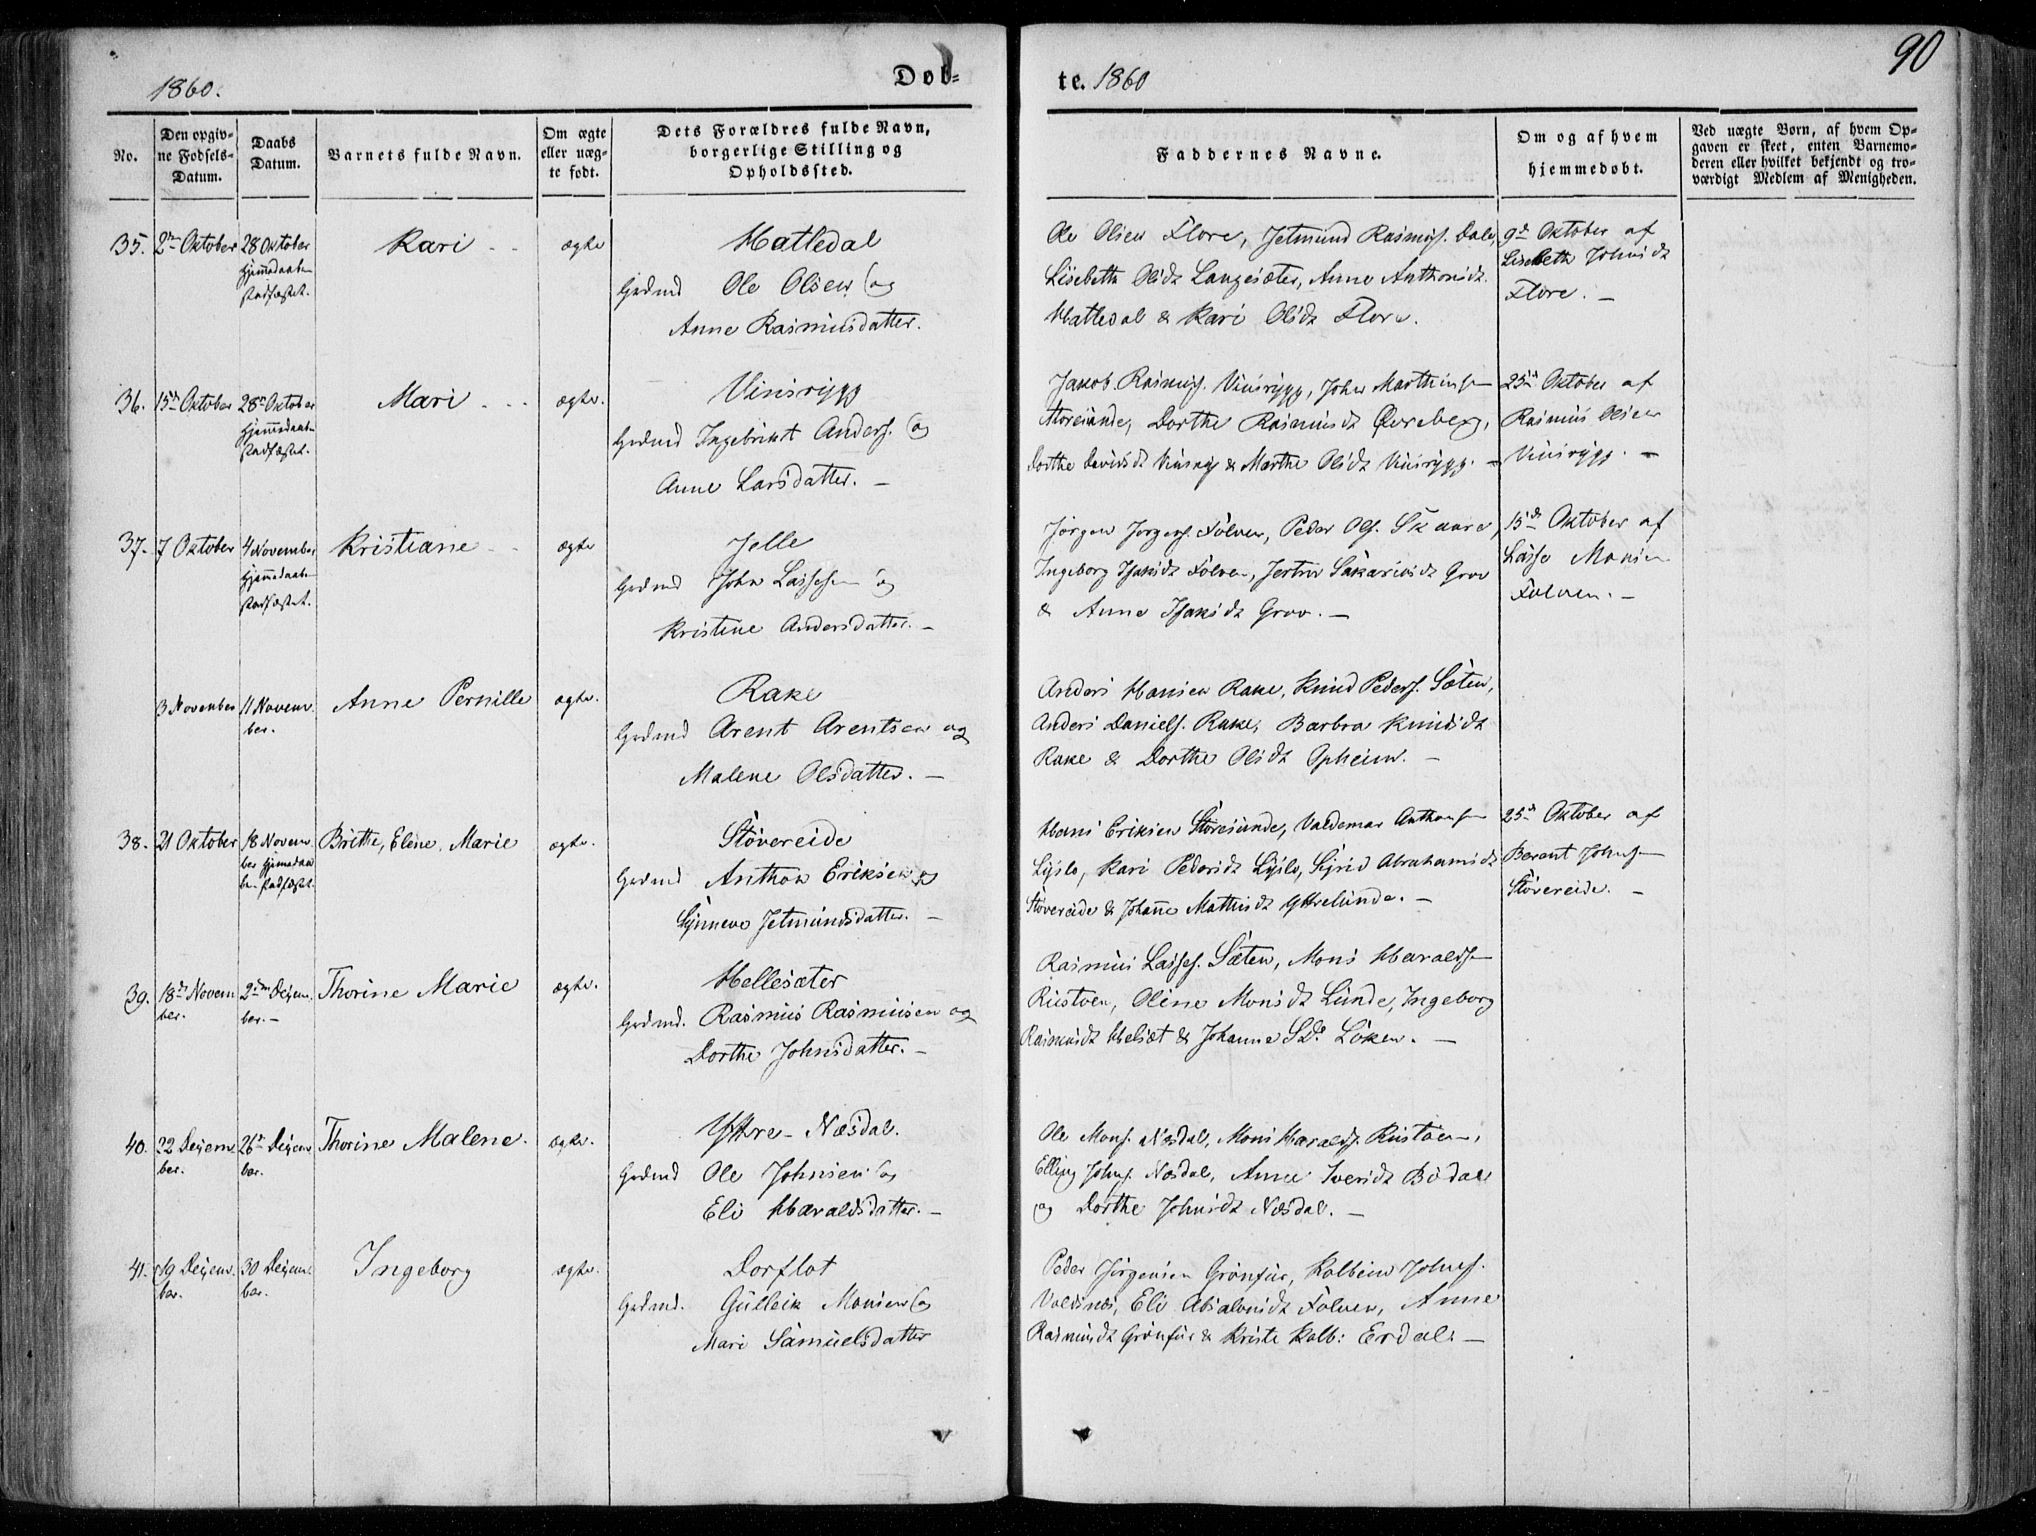 90
1860.
Døb=
te. 1860
No.
Den opgiv-
ne Fødsels-
Datum.
Daabs
Datum.
Barnets fulde Navn.
Om ægte
eller uæg-
te født.
Dets Forældres fulde Navn,
borgerlige Stilling og
Opholdssted.
Faddernes Navne.
Om og af hvem
hjemmedøbt.
Ved uægte Børn, af hvem Op-
gaven er skeet, enten Barnemo-
deren eller hvilket bekjendt og tro-
værdigt Medlem af Menigheden.
35. 2den Oktober 28 Oktober Kari ægte Hatledal
hjemmedaaben
stadfæstet.
Grdmd Ole Olsen og
Anne Rasmusdatter.
Ole Olsen Flore, Jetmund Rasmuss. Dale,
Lisebeth Olsdt Langesæter, Anne Anthonsdt.
Hatledal & Kari Olsdt Flore.
9de Oktober af
Lisebeth Johnsdt
Flore. –
36. 15de Oktober 28de Oktober Mari ægte. Vinsrygg
Hjemmedaaben
stadfæstet.
Grdmd Ingebrikt Anders. og
Anne Larsdatter. –
Jakob Rasmuss. Vinsrygg, John Marthinsen
Storesunde, Dorthe Rasmusdt Øvreberg,
Dorthe Davidsdt Vinsrygg & Marthe Olsdt Vinsrygg. –
25de Oktober af
Rasmus Olsen
Vinsrygg. –
37. 7 Oktober 4 November Kristiane ægte Jelle
Hjemmedaaben
stadfæstet.
Grdmd John Lassesen og
Kristine Andersdatter. –
Jørgen Jørgens. Folven, Peder Ols. Skaare,
Ingeborg Isaksdt Folven, Jertru Sakariasdt Grov
& Anne Isaksdt Grov. –
15de Oktober af
Lasse Monsen
Folven. –
3 November 11 Novem- Anne Pernille ægte. Rake
ber.
Grdmd Arent Arentsen og
Malene Olsdatter. –
Anders Hansen Rake, Knud Peders. Sæten,
Anders Daniels. Rake, Barbra Knudsdt
Rake & Dorthe Olsdt Opheim. –
38. 21 Oktober 18 Novem- Brithe, Eline, Marie ægte. Støvereide
ber hjemmedaa-
ben stadfæstet.
Grdmd Anthon Eriksen og
Synneve Jetmundsdatter. –
Hans Eriksen Storesunde, Valdemar Anthonsen
Lyslo, Kari Pedersdt Lyslo, Sigrid Abrahamsdt
Støvereide & Johanne Mathisdt Yttrelunde. –
25de Oktober af
Berent Johnsen
Støvereide. –
39. 18de Novem- 2den Dezem- Thorine Marie ægte. Hellesæter
ber. ber. –
Grdmd. Rasmus Rasmusen og
Dorthe Johnsdatter. –
Rasmus Lasses. Sæten, Mons Haraldsen
Rustøen, Oline Monsdt Lunde, Ingeborg
Rasmusdt Helsæt & Johanne Sdr Løken. –
40. 22 Dezem- 26de Dezem- Thorine Malene. ægte. Yttre-Næsdal.
ber. ber.
Grdmd Ole Johnsen og
Eli Haraldsdatter. –
Ole Mons. Næsdal, Mons Haralds. Rustøen,
Elling Johns. Næsdal, Anne Iversdt Bødal
og Dorthe Johnsdt Næsdal. –
41. 19 Dezem- 30 Dezem- Ingeborg ægte. Dorflot
ber. ber.
Grdmd. Gulleik Monsen og
Mari Samuelsdatter
Peder Jörgensen Grönfur, Kolbein Johns.
Voldsnes, Eli Absalonsdt Folven, Anne
Rasmusdt Grönfur & Kriste Kolb: Erdal. –